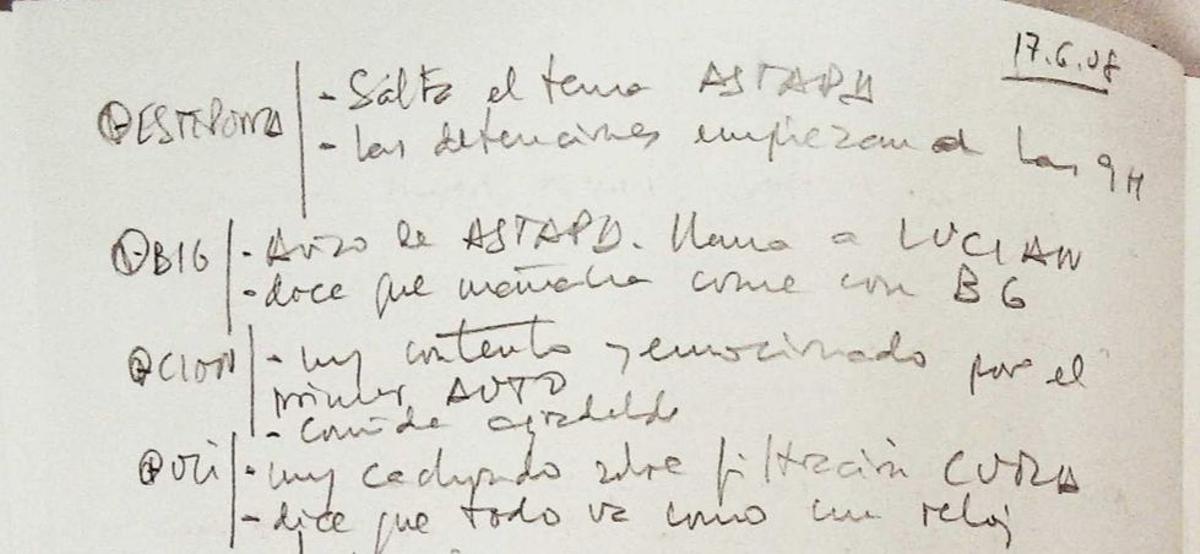 17.6.08
ESTEPONA - Salta el tema ASTAPA
- Las detenciones empiezan a las 9H
BIG - Aviso de ASTAPA. Llama a LUCIAN
- dice que mañana come con BG
CION - muy contento y emocionado por el
primer AUTO
- Comida agradable
- muy cachondo sobre filtración CURA
- dice que todo va como un reloj